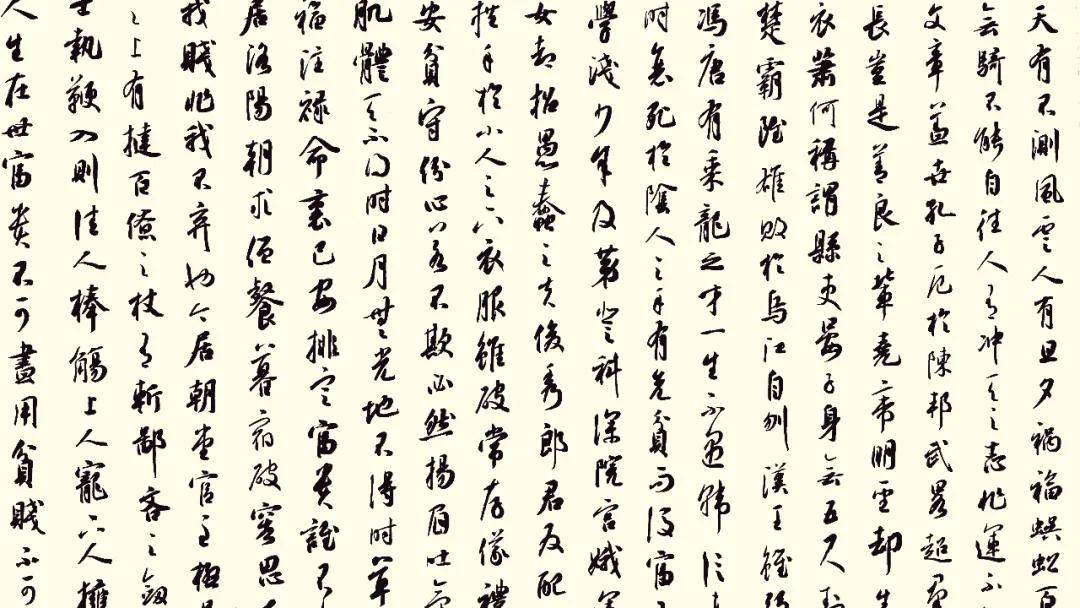 天有不測風雲人有旦夕禍福蜈蚣百
無騎不能自往人有冲天之志非運不
文章蓋世孔子厄於陳邦武畧超
長豈是善良之輩堯帝明聖却生
衣蕭何稱謂縣吏晏子身無五尺封
楚霸雖雄敗於烏江自刎漢王雖弱
馮唐有乘龍之才一生不遇韓信未
时急死於陰人之手有先貧而後富
學淺少年及第登科深院宮娥
女却招愚蠢之夫俊秀郎君反配
拱手於小人之下衣服雖破常存儀禮
安貧守份心若不欺必然揚眉吐氣
肌體天不得时日月無光地不得时草
福注禄命裏已安排定富貴誰不
居洛陽朝求僧餐暮宿破窰思
我賤非我不棄也今居朝堂官至極
之上有撻百僚之杖有斬鄙吝之劍
士執鞭入則佳人棒觴上人寵下人擁
人生在世富貴不可盡用貧賤不可